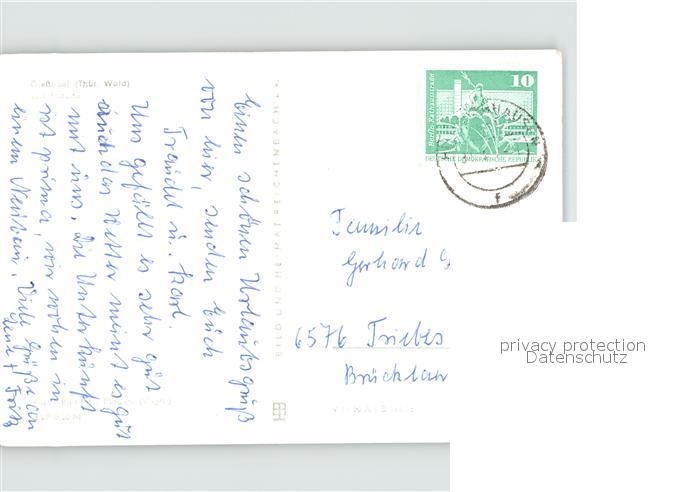 (Thür. Wald)
Einen schönen Urlaubsgruß
von hier, senden Euch
Traudel u. Karl.
Uns gefällt es sehr gut
auch das Wetter meint es gut
mit uns. Die Unterkunft
ist prima, wir wohnen in
einem Neubau. Viele Grüße an
BILD UND HEIMAT REICHENBACH I. V.
10
Berlin-Rathausstraße
DEUTSCHE DEMOKRATISCHE REPUBLIK
f
Familie
Gerhard G
6576 Triebes
privacy protection
Datenschutz